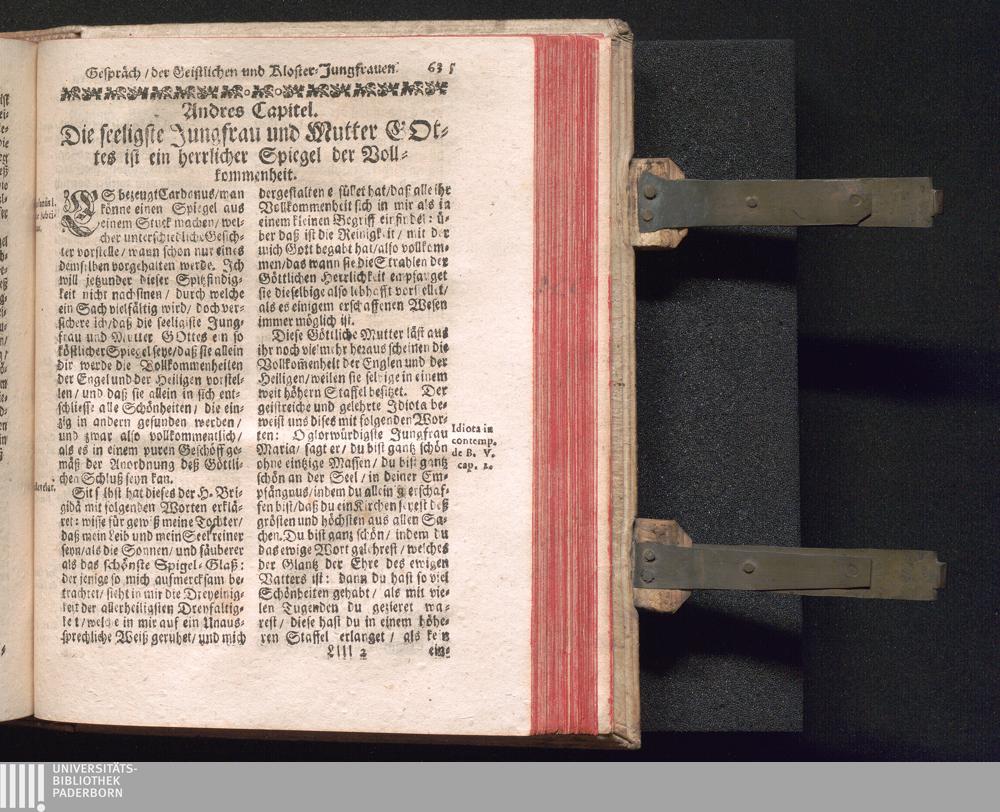 Gespräch / der Geistlichen und Kloster-Jungfrauen. 635
Andres Capitel.
Die seeligste Jungfrau und Mutter GOt-
tes ist ein herrlicher Spiegel der Voll-
kommenheit.
ES bezeugt Cardanus / man
könne einen Spiegel aus
einem Stuck machen / wel-
cher unterschiedliche Gesich-
ter vorstelle / wann schon nur eines
demselben vorgehalten werde. Ich
will jetzunder dieser Spitzfindig-
keit nicht nachsinen / durch welche
ein Sach vielfältig wird / doch ver-
sichere ich / daß die seeligste Jung-
frau und Mutter GOttes ein so
köstlicher Spiegel seye / daß sie allein
dir werde die Vollkommenheiten
der Engel und der Heiligen vorstel-
len / und daß sie allein in sich ent-
schliesse alle Schönheiten / die ein-
zig in andern gefunden werden /
und zwar also vollkommentlich /
als es in einem puren Geschöff ge-
mäß der Anordnung deß Göttli-
chen Schluß seyn kan.
Sit selbst hat dieses der H. Bri-
gidä mit folgenden Worten erklä-
ret: wisse für gewiß meine Tochter /
daß mein Leib und mein Seel reiner
seyn / als die Sonnen / und säuberer
als das schönste Spigel-Glaß:
der jenige so mich aufmercksam be-
trachtet / sieht in mir die Dreyeinig-
keit der allerheiligsten Dreyfaltig-
keit / welche in mir auf ein Unaus-
sprechliche Weiß geruhet / und mich
dergestalten erfüllet hat / daß alle ihr
Vollkommenheit sich in mir als in
einem kleinen Begriff einfindet: ü-
ber daß ist die Reinigkeit / mit der
mich Gott begabt hat / also vollkom-
men / das wann sie die Strahlen der
Göttlichen Herrlichkeit empfanget
sie dieselbige also lebhafft vorstellet /
als es einigem erschaffenen Wesen
immer möglich ist.
Diese Göttliche Mutter läst aus
ihr noch vielmehr heraus scheinen die
Vollkom̄enheit der Englen und der
Heiligen / weilen sie selbige in einem
weit höhern Staffel besitzet. Der
geistreiche und gelehrte Idiota be-
weist uns dises mit folgenden Wor-
ten: O glorwürdigste Jungfrau
Maria / sagt er / du bist gantz schön
ohne eintzige Massen / du bist gantz
schön an der Seel / in deiner Em-
pfängnus / indem du allein erschaf-
fen bist / daß du ein Kirchen seyest deß
grösten und höchsten aus allen Sa-
chen. Du bist gantz schön / indem du
das ewige Wort gebohrest / welches
der Glantz der Ehre des ewigen
Vatters ist: dann du hast so viel
Schönheiten gehabt / als mit vie-
len Tugenden du gezieret wa-
rest / diese hast du in einem höhe-
ren Staffel erlanget / als kein
Idiota in
contemp.
de B. V.
cap. 2.
Llll 2 ein-
UNIVERSITÄTS-
BIBLIOTHEK
PADERBORN